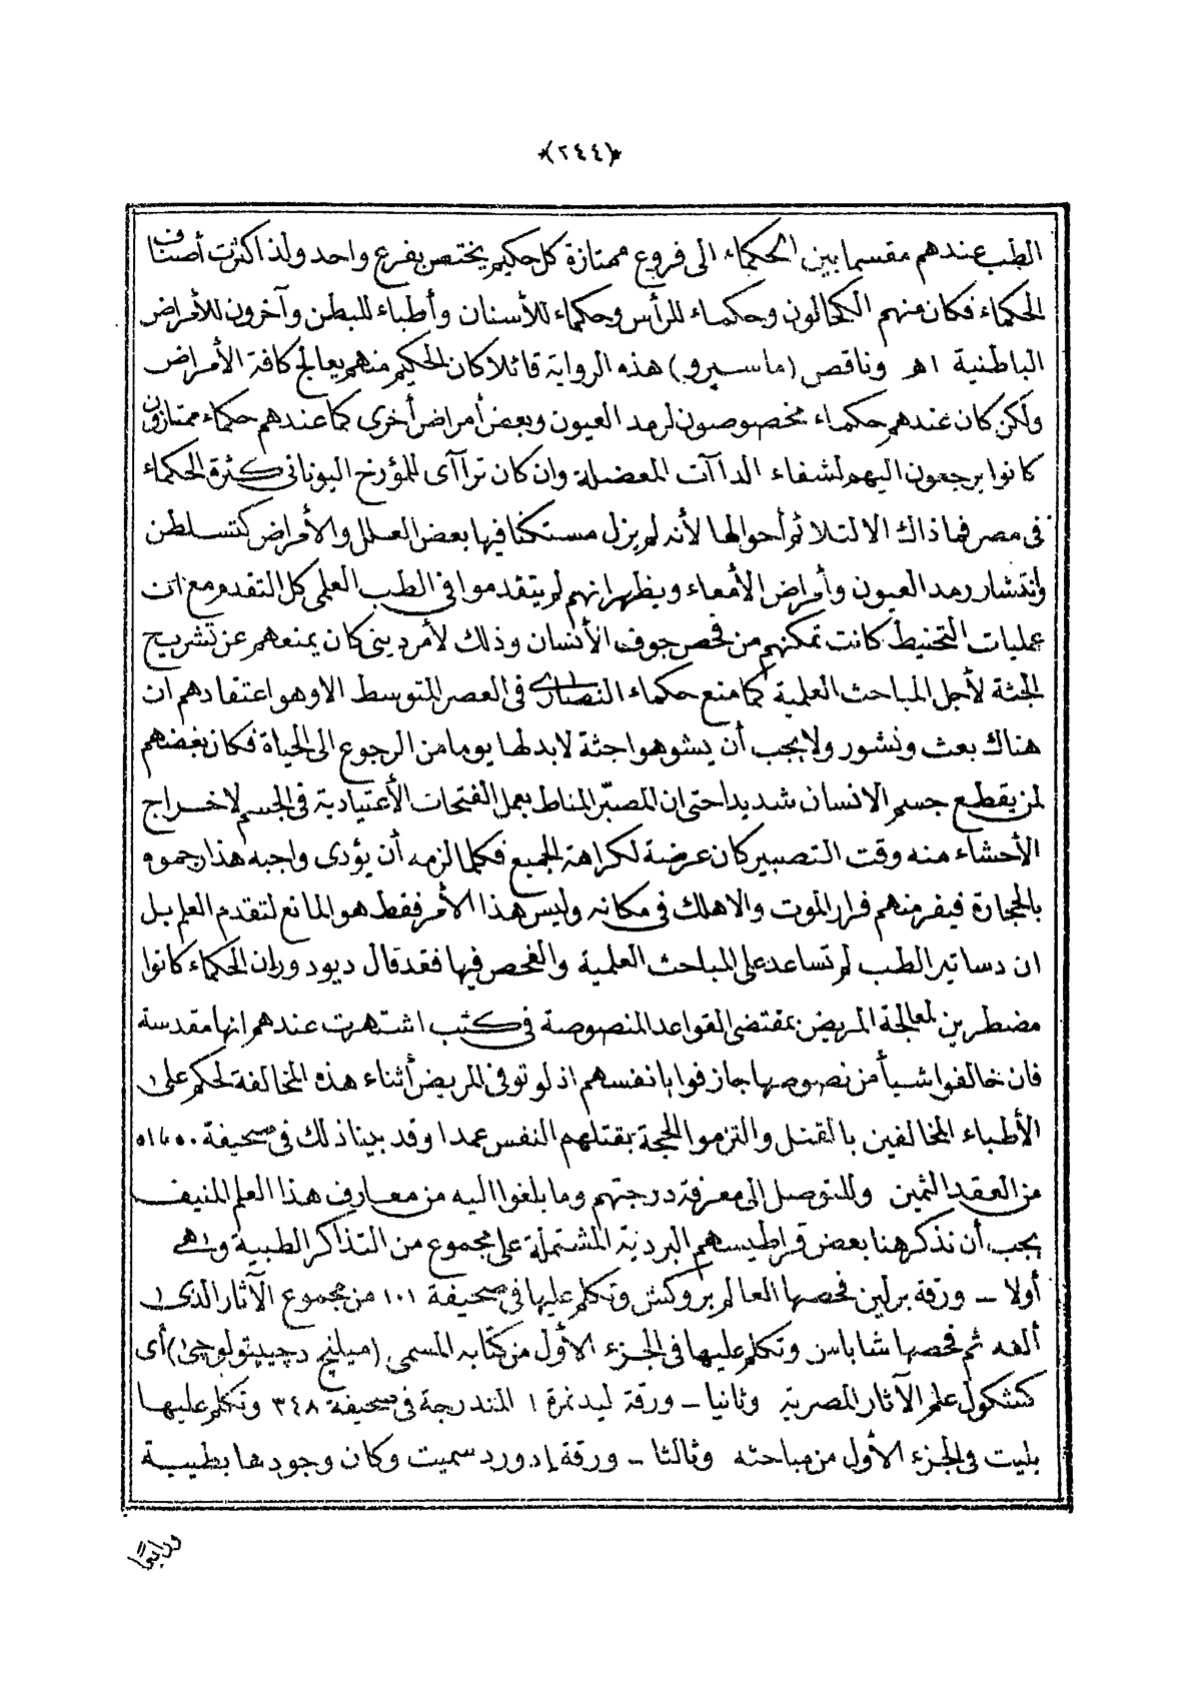 ﴿٢٤٤﴾
الطب عندهم مقسما بين الحكماء الى فروع ممتازة كل حكيم يختص بفرع واحد ولذا كثرت أصناف
الحكماء فكان منهم الكحالون وحكماء للرأس وحكماء للأسنان وأطباء للبطن وآخرون للأمراض
الباطنية اهـ وناقص (ماسپرو) هذه الرواية قائلا كان الحكيم منهم يعالج كافة الأمراض
ولكن كان عندهم حكماء مخصوصون لرمد العيون وبعض أمراض أخرى كما عندهم حكماء ممتازون
كانوا يرجعون اليهم لشفاء الداآت المعضلة وان كان تراآى للمؤرخ اليونانى كثرة الحكماء
فى مصر فما ذاك الا لتلائم أحوالها لأنه لم يزل مستكنا فيها بعض العلل والأمراض كتسلطن
وانتشار رمد العيون وأمراض الأمعاء ويظهر انهم لم يتقدموا فى الطب العلمى كل التقدم مع ان
عمليات التحنيط كانت تمكنهم من فحص جوف الأنسان وذلك لأمر دينى كان يمنعهم عن تشريح
الجثة لأجل المباحث العلمية كما منع حكماء النصارى فى العصر المتوسط الا وهو اعتقادهم ان
هناك بعث ونشور ولا يجب أن يشوهوا جثة لابد لها يوما من الرجوع الى الحياة فكان بغضهم
لمن يقطع جسم الانسان شديدا حتى ان المصبّر المناط بعمل الفتحات الأعتيادية فى الجسم لاخراج
الأحشاء منه وقت التصبير كان عرضة لكراهة الجميع فكلما لزمه أن يؤدى واجبه هذا رجموه
بالحجارة فيفر منهم فرار الموت والا هلك فى مكانه وليس هذا الأمر فقط هو المانع لتقدم العلم بل
ان دساتير الطب لم تساعد على المباحث العلمية والفحص فيها فقد قال ديودور ان الحكماء كانوا
مضطرين لمعالجة المريض بمقتضى القواعد المنصوصة فى كتب اشتهرت عندهم انها مقدسة
فان خالفوا شيأ من نصوصها جازفوا بانفسهم اذ لو توفى المريض أثناء هذه المخالفة لحكم على
الأطباء المخالفين بالقتل والتزموا الحجة بقتلهم النفس عمدا وقد بينا ذلك فى صحيفة
من العقد الثمين وللتوصل الى معرفة درجتهم وما بلغوا اليه من معارف هذا العلم المنيف
يجب أن نذكر هنا بعض قراطيسهم البردية المشتملة على مجموع من التذاكر الطبية وهى
أولا ــ ورقة برلين فحصها العالم بروكش وتكلم عليها فى صحيفة ١٠١ من مجموع الآثار الذى
ألفه ثم فحصها شاباس وتكلم عليها فى الجزء الأول من كتابه المسمى (ميلنچ دچيپتولوچى) أى
كشكول علم الآثار المصرية وثانيا ــ ورقة ليد نمرة ١ المندرجة فى صحيفة ٣٤٨ وتكلم عليها
بليت فى الجزء الأول من مباحثه وثالثا ــ ورقة إدورد سميت وكان وجودها بطيبة
ورابعًا